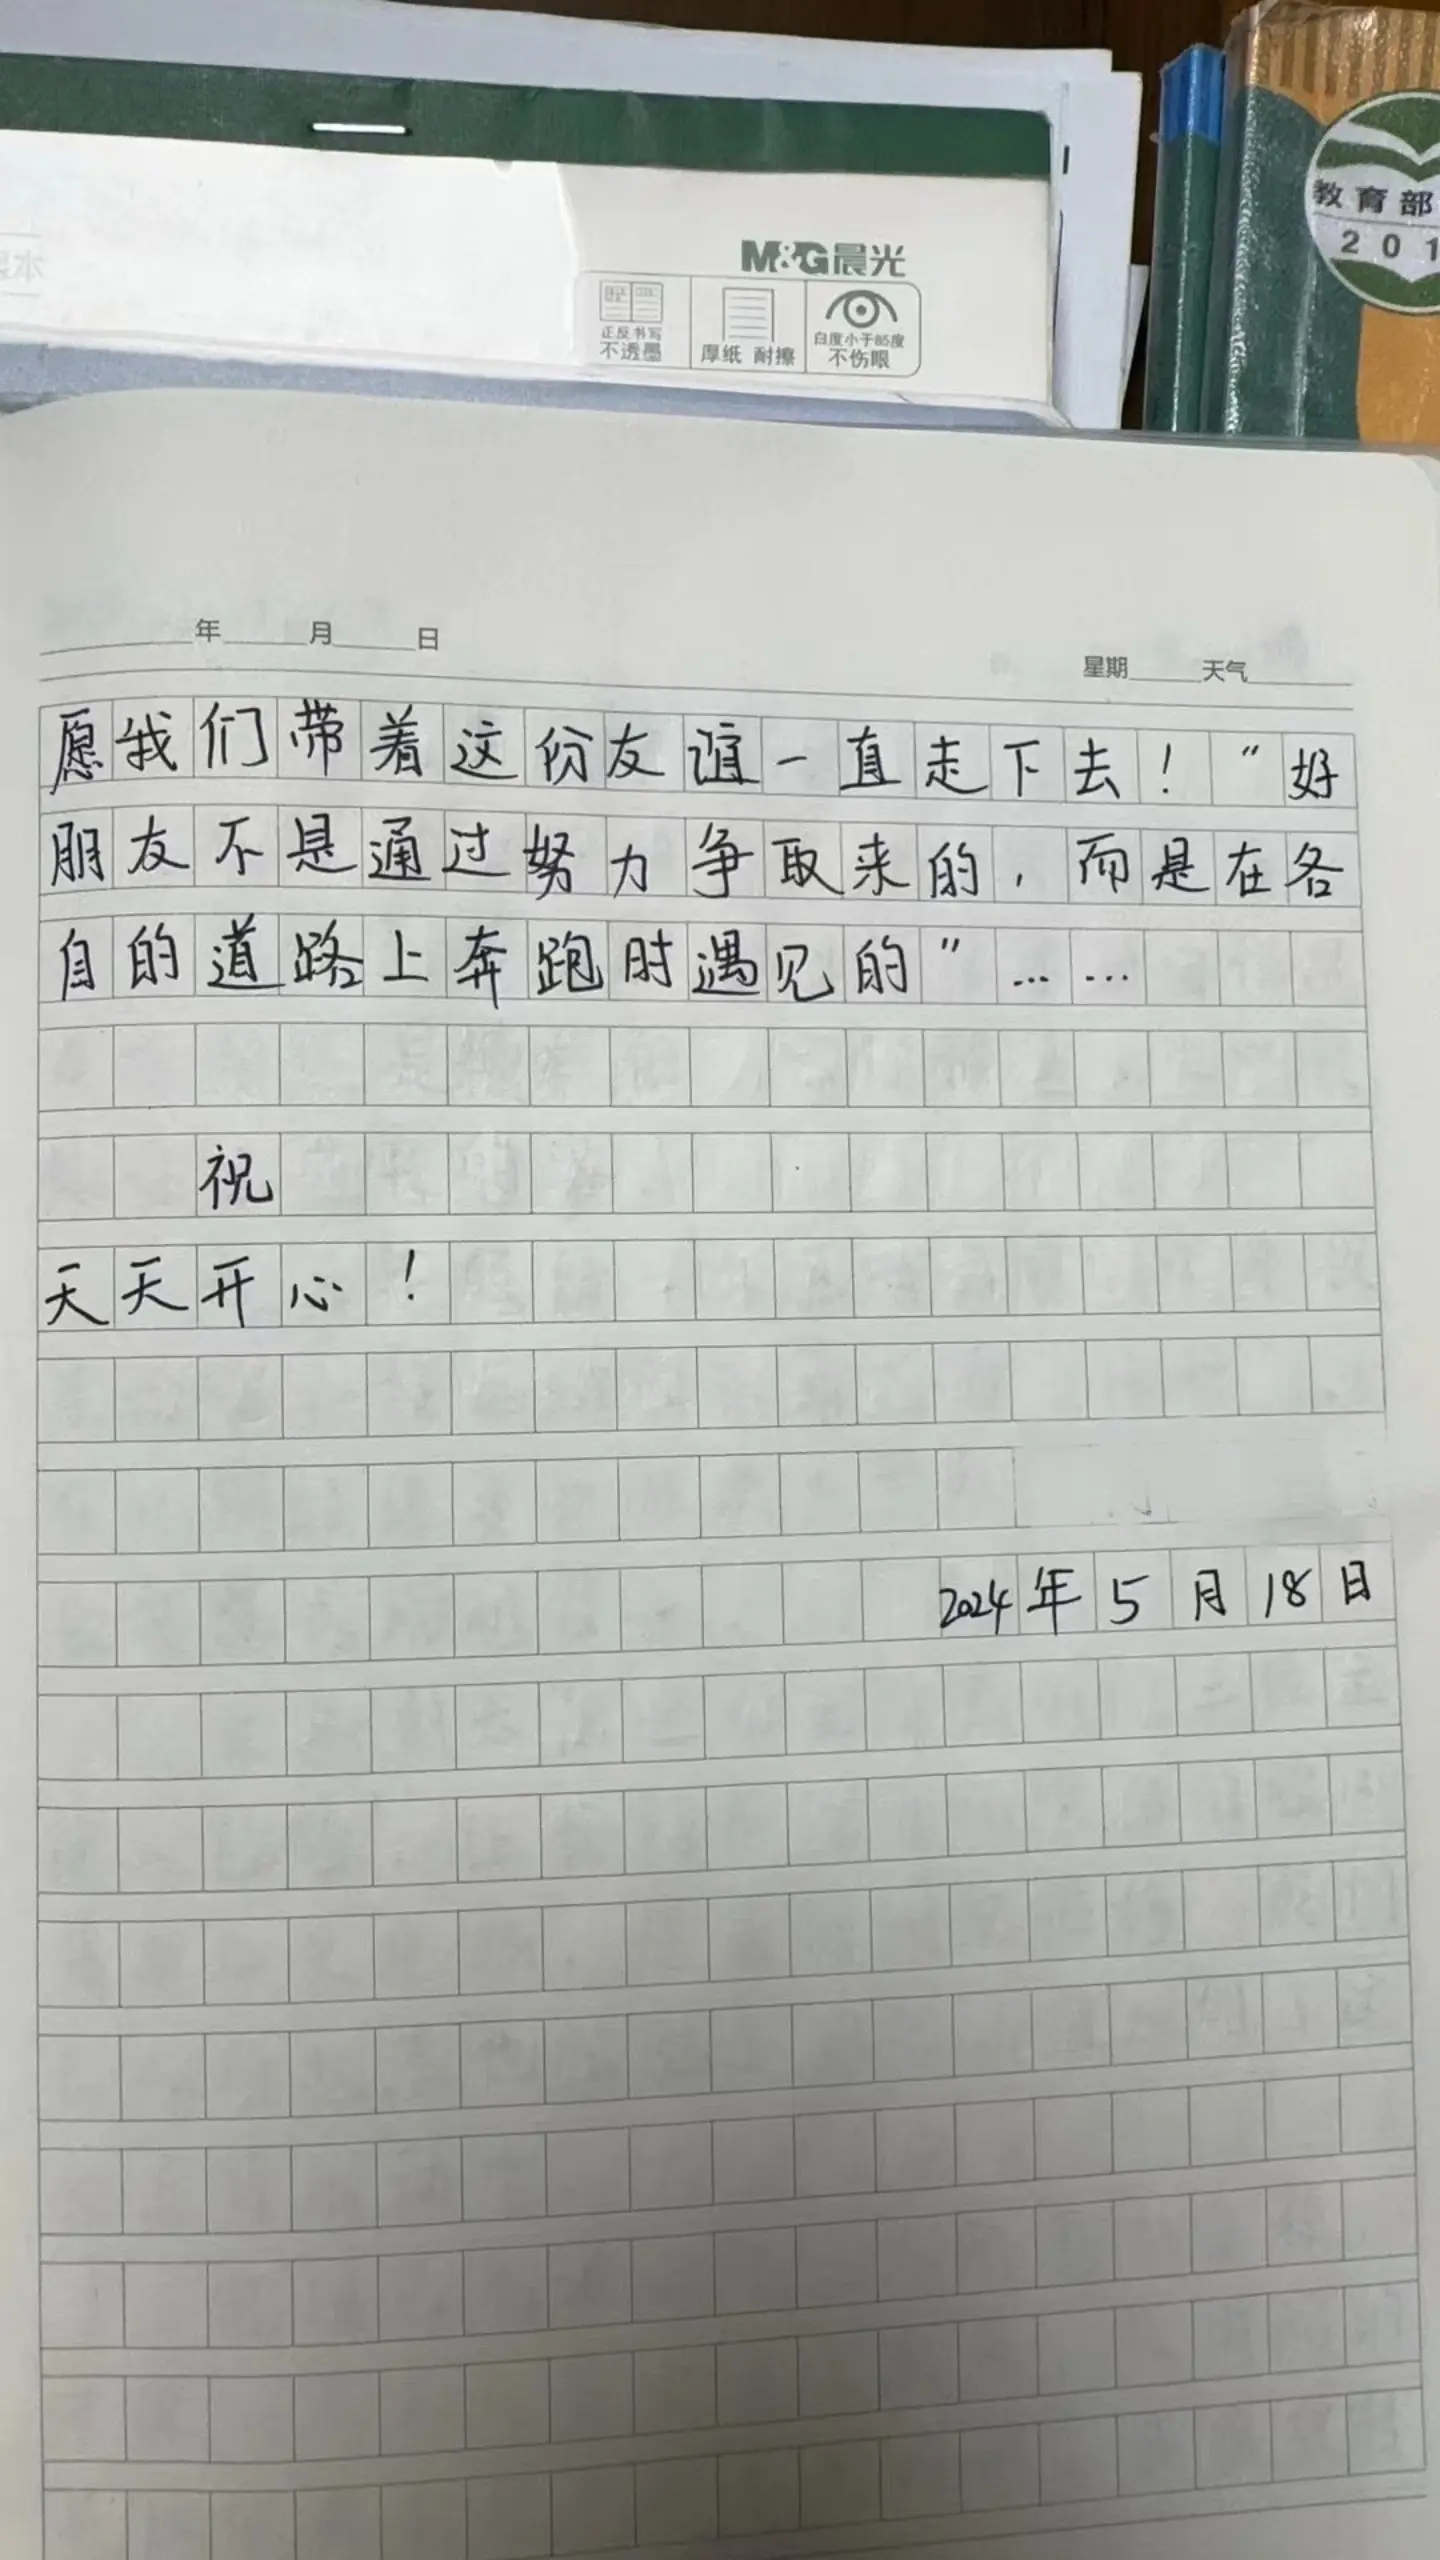 M&G晨光
正反书写
不透墨
厚纸 耐擦
白度小于85度
不伤眼
教育部
201
年 月 日
星期 天气
愿我们带着这份友谊一直走下去！“好
朋友不是通过努力争取来的，而是在各
自的道路上奔跑时遇见的”……
祝
天天开心！
2024年5月18日